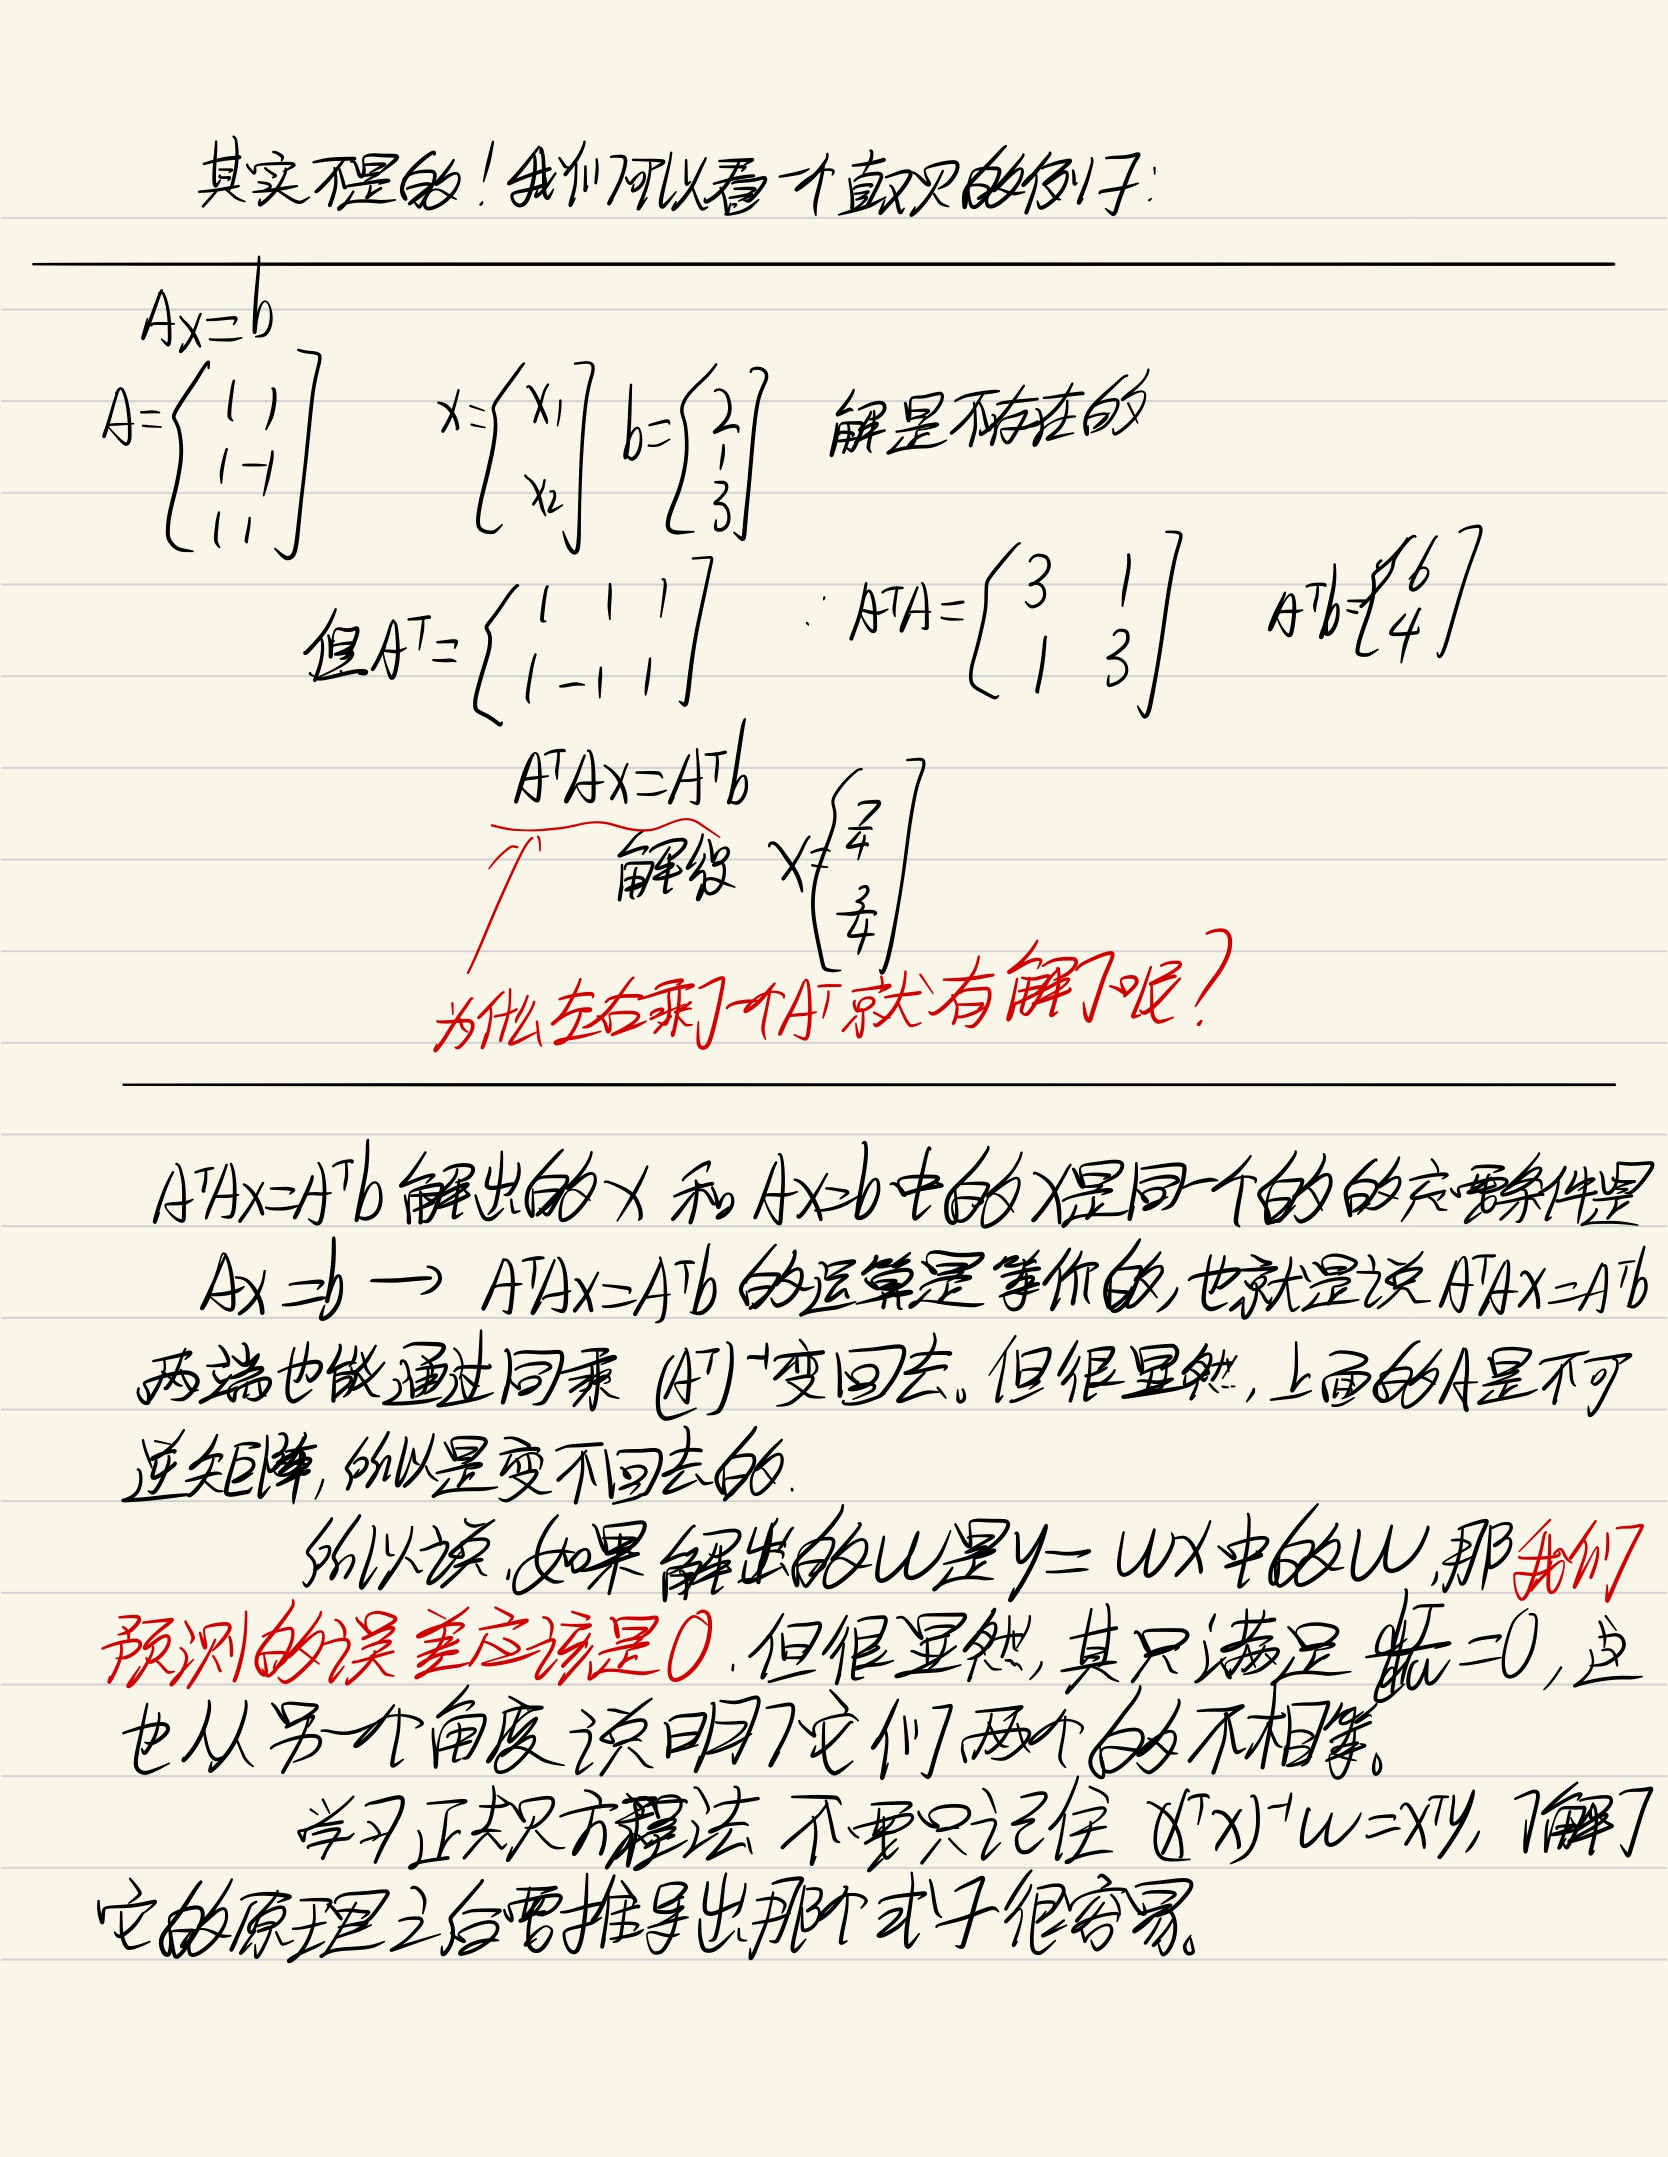 其实不是的!我们可以看一个直观的例子:
Ax=b
A=[1 1; 1 -1; 1 1] x=[x₁; x₂] b=[2; 1; 3] 解是不存在的
但Aᵀ=[1 1 1; 1 -1 1] ∴ AᵀA=[3 1; 1 3] Aᵀb=[6; 4]
AᵀAx=Aᵀb
解得 x=[7/4; 3/4]
为什么左右乘了一个Aᵀ就有解了呢?
AᵀAx=Aᵀb 解出的 x 和 Ax=b 中的 x是同一个的的充要条件是
Ax=b → AᵀAx=Aᵀb 的运算是等价的,也就是说 AᵀAx=Aᵀb
两端也能通过同乘 (Aᵀ)⁻¹变回去。但很显然,上面的A是不可
逆矩阵,所以是变不回去的.
所以说,如果解出的w是y=wx中的w,那我们
预测的误差应该是0.但很显然,其只满足 dJ/dw=0,这
也从另一个角度说明了它们两个的不相等。
学习正规方程法 不要只记住 (xᵀx)⁻¹w=xᵀy,了解了
它的原理之后要推导出那个式子很容易。